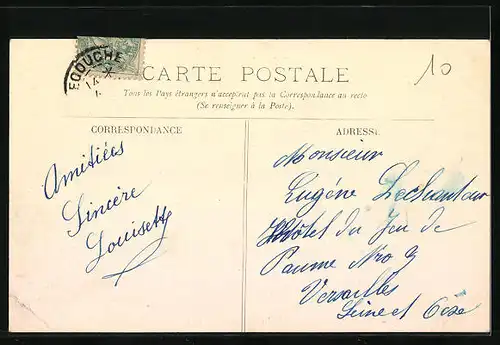 EQUCHE
14
10
CARTE POSTALE
Tous les Pays étrangers n'acceptent pas la Correspondance au recto
(Se renseigner à la Poste).
CORRESPONDANCE
Amitiées
Sincère
Louisette
ADRESSE
Monsieur
Eugéne
Hôtel du Jeu de
Paume Nro 9
Versailles
Seine et Oise